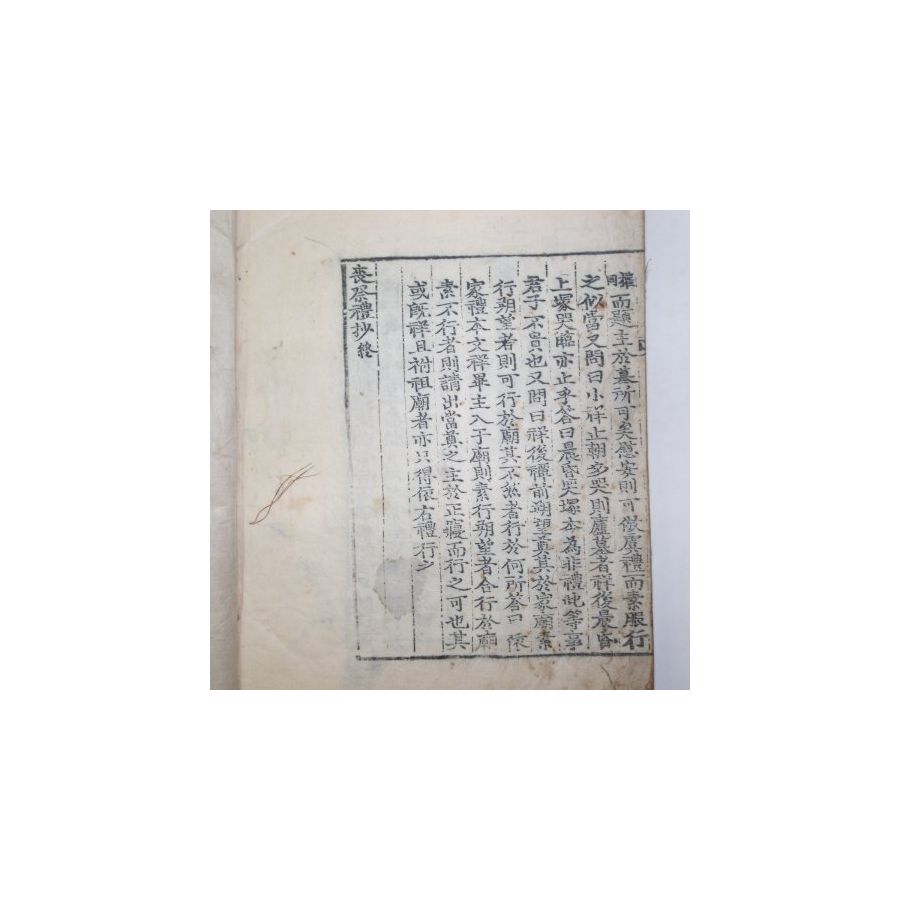 而題主於墓所可矣慰安則可倣虞禮而素服行
之似當又問曰小祥止朝夕哭則廬墓者祥後晨昏
上塚哭臨亦止乎答曰晨昏哭塚本為非禮此等事
君子不貴也又問曰祥後禫前朔望奠其於家廟素
行朔望者則可行於廟其不然者行於何所答曰依
家禮本文祥畢主入于廟則素行朔望者合行於廟
素不行者則請出當奠之主於正寢而行之可也其
或旣祥且祔祖廟者亦只得依右禮行之
喪祭禮抄終